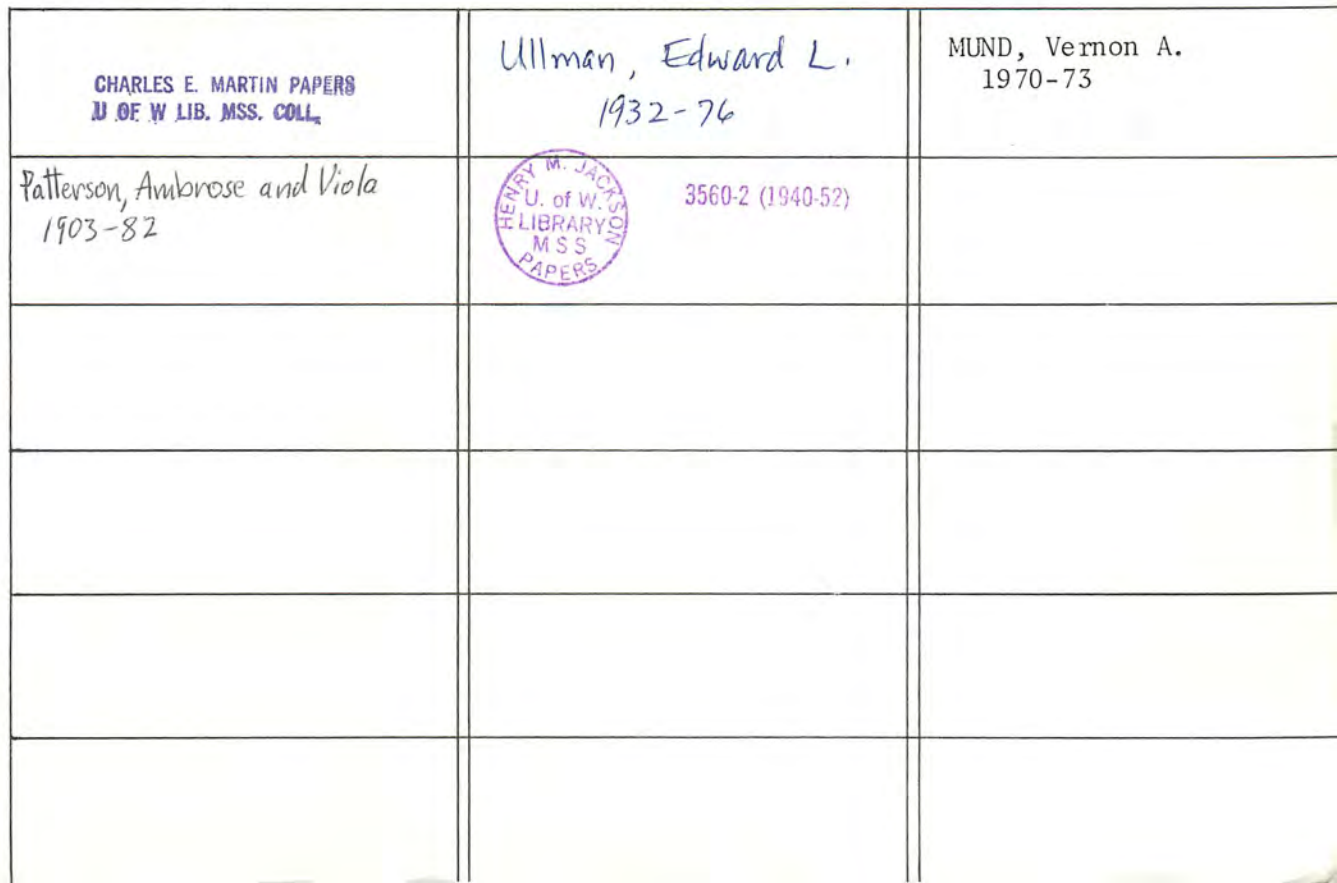 CHARLES E. MARTIN PAPERS
U OF W LIB. MSS. COLL.
Ullman, Edward L.
1932-76
MUND, Vernon A.
1970-73
Patterson, Ambrose and Viola
1903-82
HENRY M. JACKSON
U. of W.
LIBRARY
MSS
PAPERS
3560-2 (1940-52)